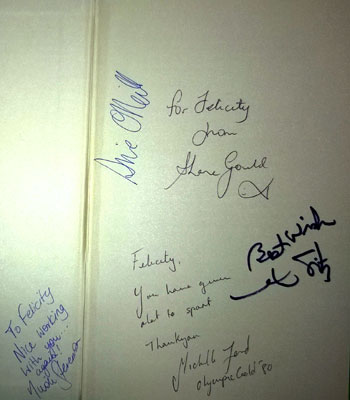 For Felicity
from
Shane Gould
Felicity,
You have given
alot to sport
Thankyou
Michelle Ford
Olympic Gold '80
Best Wishes
To Felicity
Nice working
with you...
again!